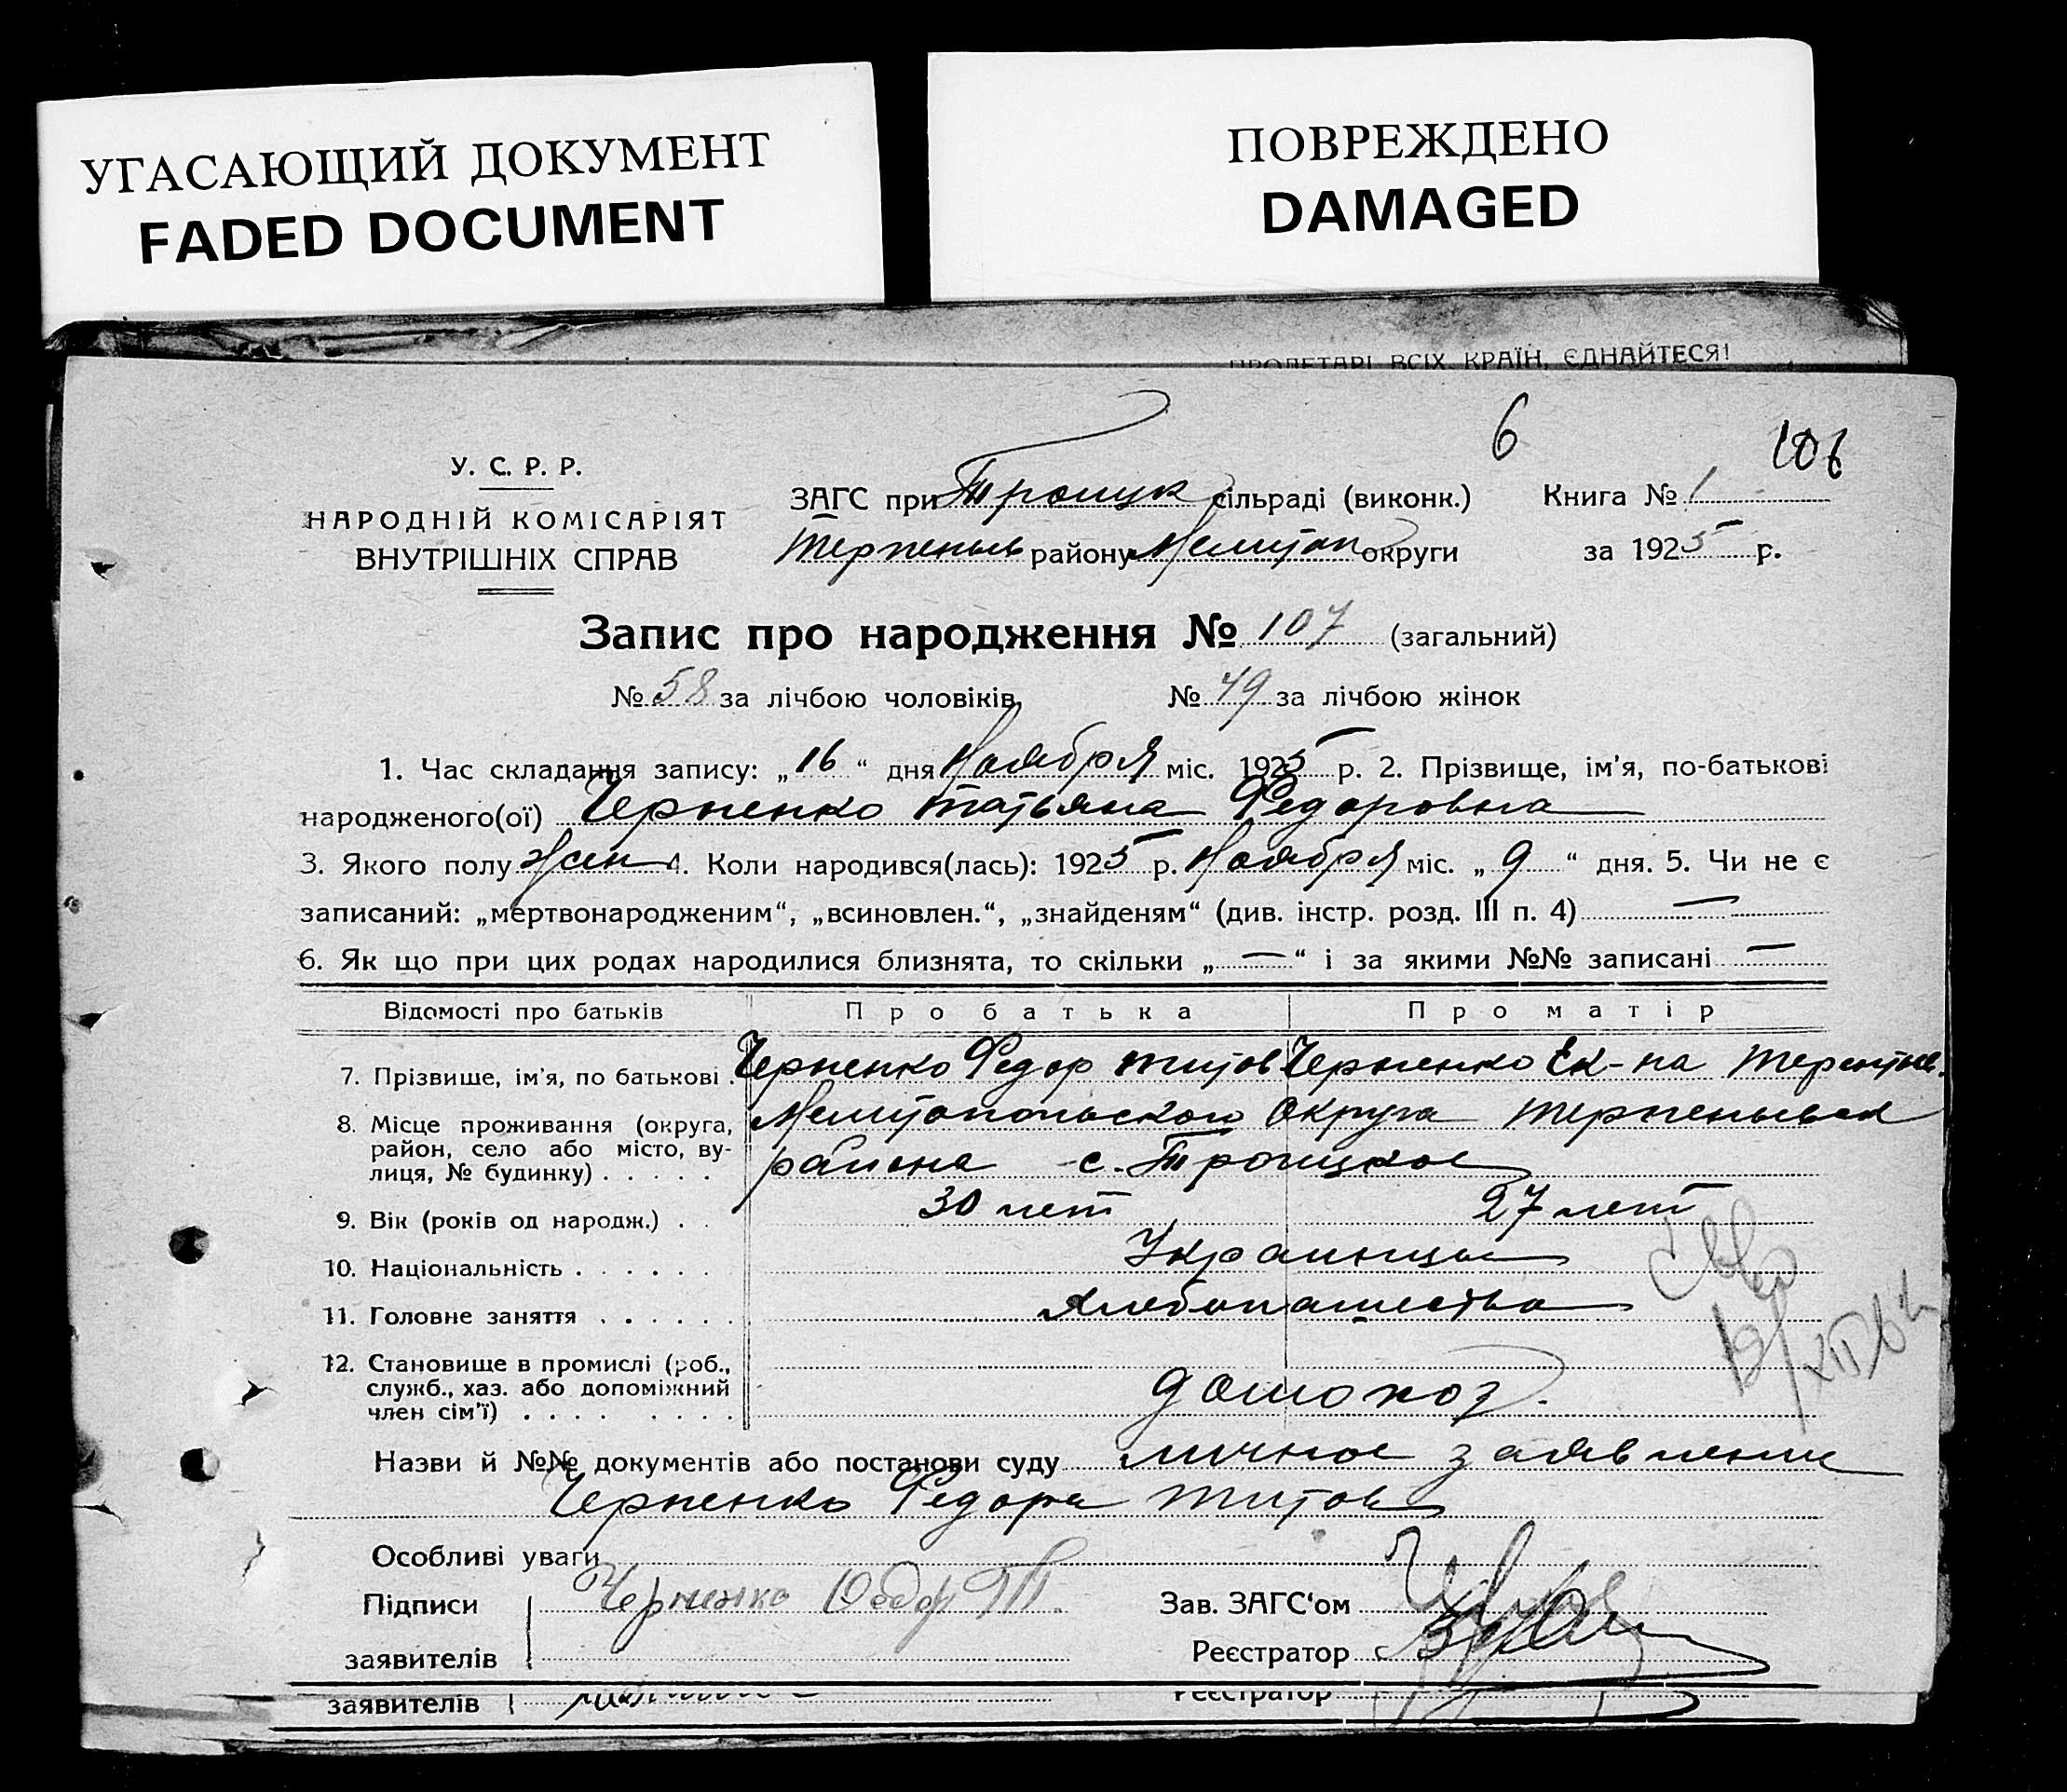 УГАСАЮЩИЙ ДОКУМЕНТ
FADED DOCUMENT
ПОВРЕЖДЕНО
DAMAGED
ПРОЛЕТАРІ ВСІХ КРАЇН, ЄДНАЙТЕСЯ!
6
106
У. С. Р. Р.
НАРОДНІЙ КОМІСАРІЯТ
ВНУТРІШНІХ СПРАВ
ЗАГС при Троицк сільраді (виконк.) Книга № 1
Терпеньев району Мелитоп округи за 1925 р.
Запис про народження № 107 (загальний)
№ 58 за лічбою чоловіків № 49 за лічбою жінок
1. Час складання запису: „16“ дня Ноября міс. 1925 р. 2. Прізвище, ім'я, по-батькові
народженого(ої) Черненко Татьяна Федоровна
3. Якого полу жен 4. Коли народився(лась): 1925 р. Ноября міс. „9“ дня. 5. Чи не є
записаний: „мертвонародженим“, „всиновлен.“, „знайденям“ (див. інстр. розд. III п. 4) —
6. Як що при цих родах народилися близнята, то скільки „—“ і за якими №№ записані —
Відомості про батьків Про батька Про матір
7. Прізвише, ім'я, по батькові . Черненко Федор Титов Черненко Ек-на Терентьев.
8. Місце проживання (округа, Мелитопольского Округа Терпеньевск
район, село або місто, ву- района с. Троицкое
лиця, № будинку) . . . . .
9. Вік (років од народж.) . . 30 лет 27 лет
10. Національність . . . . . . Украинцы
11. Головне заняття . . . . . . Хлебопашество
12. Становище в промислі (роб.,
служб., хаз. або допоміжний
член сім'ї) . . . . . . . . домохоз.
Назви й №№ документів або постанови суду личное заявление
Черненко Федора Титов
Особливі уваги
Підписи Черненко Федор Т. Зав. ЗАГС‘ом
заявителів Реєстратор
заявителів Реєстратор